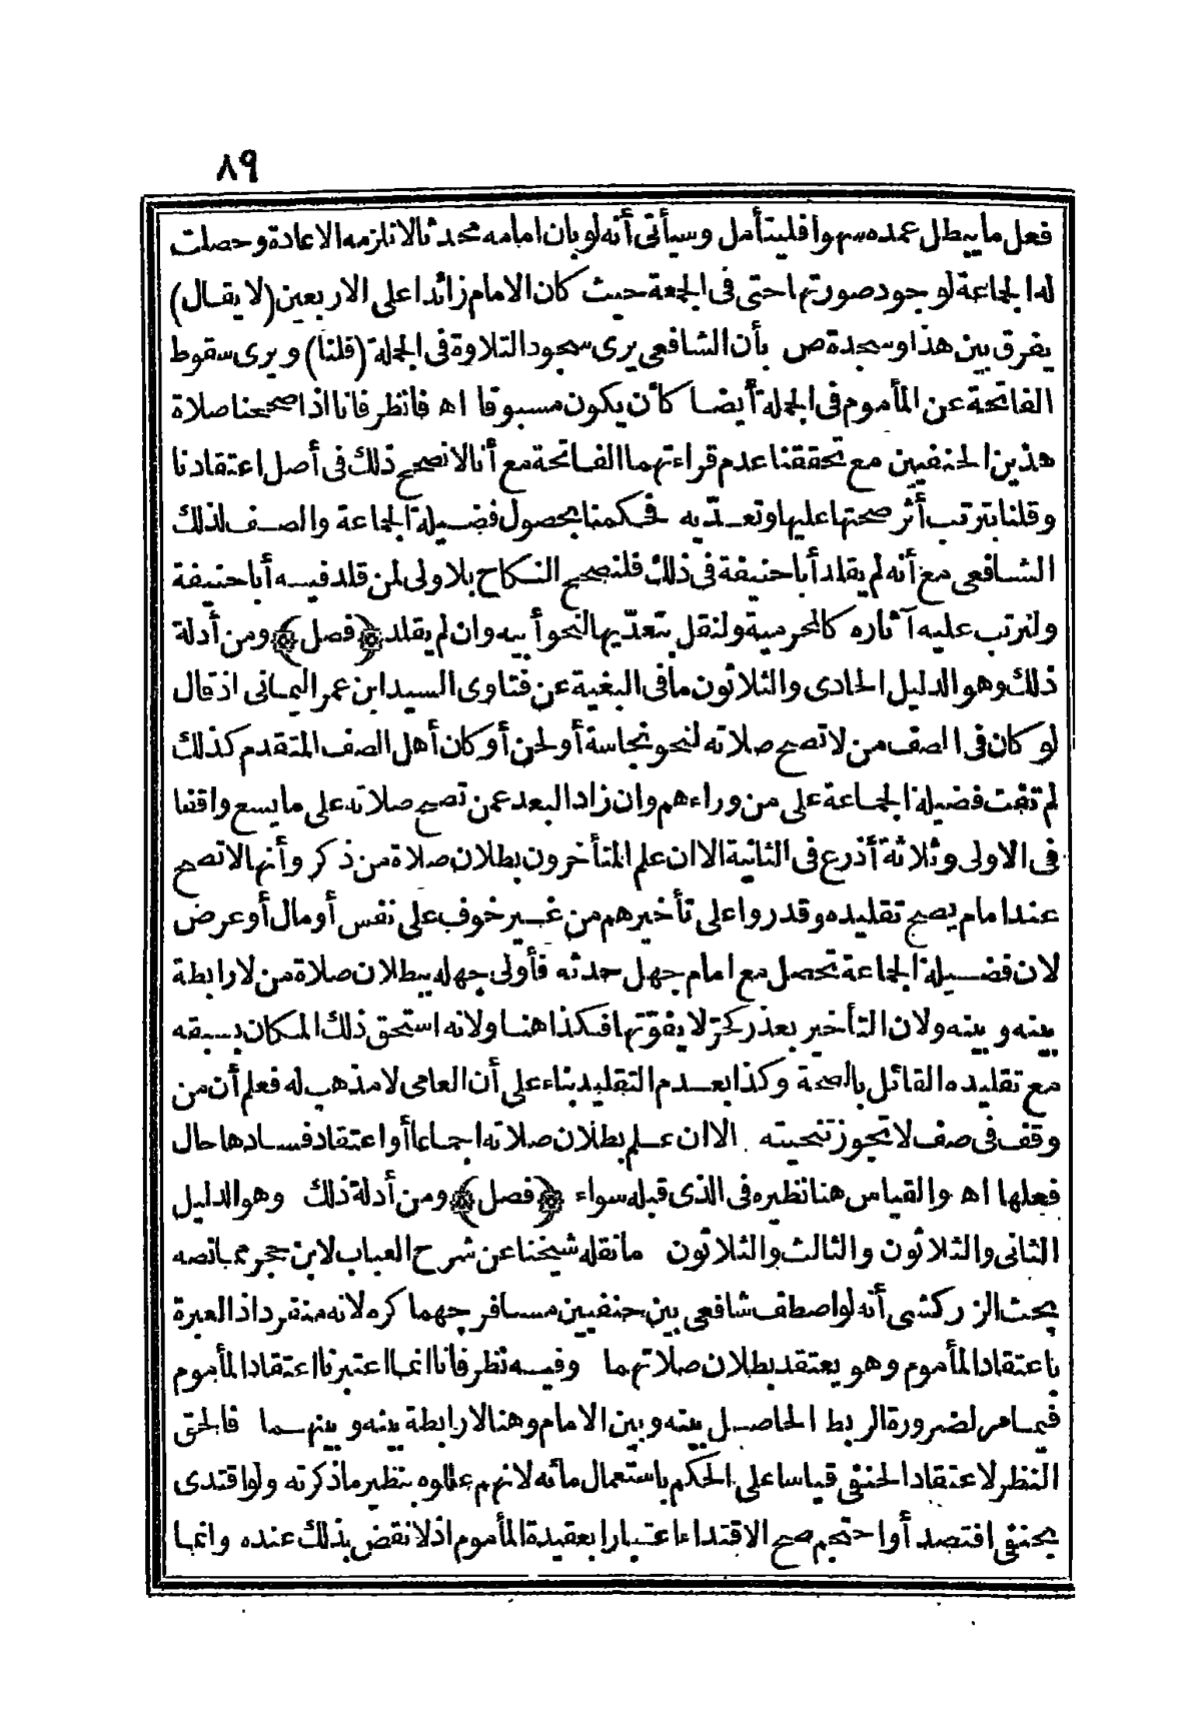 ٨٩
فعل ما يبطل عمده سهوا فليتأمل وسيأتى أنه لو بان امامه محدثا لا تلزمه الاعادة وحصلت
له الجماعة لوجود صورتها حتى فى الجمعة حيث كان الامام زائدا على الاربعين (لا يقال)
يفرق بين هذا وسجدة ص بأن الشافعى يرى سجود التلاوة فى الجملة (قلنا) ويرى سقوط
الفاتحة عن المأموم فى الجملة أيضا كأن يكون مسبوقا اه فانظر فانا اذا صححنا صلاة
هذين الحنفيين مع تحققنا عدم قراءتهما الفاتحة مع أنا لا نصحح ذلك فى أصل اعتقادنا
وقلنا بترتب أثر صحتها عليها وتعدّيه فحكمنا بحصول فضيلة الجماعة والصف لذلك
الشافعى مع أنه لم يقلد أبا حنيفة فى ذلك فلنصحح النكاح بلا ولى لمن قلد فيه أبا حنيفة
ولنرتب عليه آثاره كالمحرمية ولنقل بتعدّيها لنحو أبيه وان لم يقلد ﴿فصل﴾ ومن أدلة
ذلك وهو الدليل الحادى والثلاثون ما فى البغية عن فتاوى السيد ابن عمر اليمانى اذ قال
لو كان فى الصف من لا تصح صلاته لنحو نجاسة أو لحن أو كان أهل الصف المتقدم كذلك
لم تفت فضيلة الجماعة على من وراءهم وان زاد البعد عمن تصح صلاته على ما يسع واقفا
فى الاولى وثلاثة أذرع فى الثانية الا ان علم المتأخرون بطلان صلاة من ذكر وأنها لا تصح
عند امام يصح تقليده وقدروا على تأخيرهم من غير خوف على نفس أو مال أو عرض
لان فضيلة الجماعة تحصل مع امام جهل حدثه فأولى جهله ببطلان صلاة من لا رابطة
بينه وبينه ولان التأخير بعذر كحرّ لا يفوّتها فكذا هنا ولانه استحق ذلك المكان بسبقه
مع تقليده القائل بالصحة وكذا بعدم التقليد بناء على أن العامى لا مذهب له فعلم أن من
وقف فى صف لا تجوز تنحيته الا ان علم بطلان صلاته اجماعا أو اعتقاد فسادها حال
فعلها اه والقياس هنا نظيره فى الذى قبله سواء ﴿فصل﴾ ومن أدلة ذلك وهو الدليل
الثانى والثلاثون والثالث والثلاثون ما نقله شيخنا عن شرح العباب لابن حجر مما نصه
بحث الزركشى أنه لو اصطف شافعى بين حنفيين مسافر جهما كره لانه منفرد اذ العبرة
باعتقاد المأموم وهو يعتقد بطلان صلاتهما وفيه نظر فانا انما اعتبرنا اعتقاد المأموم
فيما مر لضرورة الربط الحاصل بينه وبين الامام وهنا لا رابطة بينه وبينهما فالحق
النظر لاعتقاد الحنفى قياسا على الحكم باستعمال مائه لانهم عللوه بنظير ما ذكرته ولو اقتدى
بحنفى افتصد أو احتجم صح الاقتداء اعتبارا بعقيدة المأموم اذ لا نقض بذلك عنده وانما